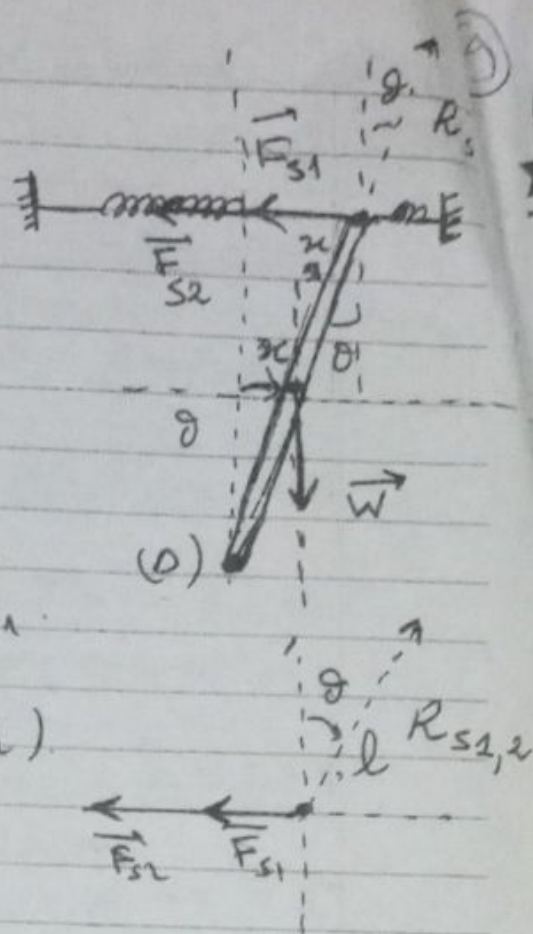 θ
R
F
S1
F
S2
x
x
θ
θ
W
(0)
θ
R S1,2
l
F S2 F S1